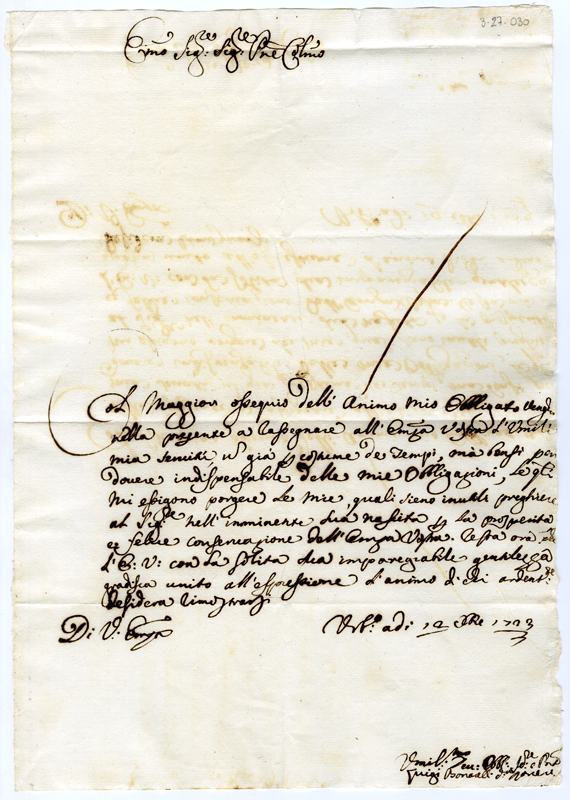 3-27-030
Em̃o Sig.re Sig.re P̃ne Col.mo
Col Maggior ossequio dell' Animo Mio Obbligato vengo
nella presente a rassegnare all' Emza Vostra l'Umil.
mia servitù nõ già p costume de tempi, mà bensi per
dovere indispensabile delle mie Obbligazioni, le q.li
mi essigono porgere le mie, quali sieno inutili preghiere
al Sig.re nell' imminente sua nascita p la prosperità
e felice conservazione dell' Emza Vostra. Resta ora che
l'E: V: con la solita sua impareggiabile gentilezza
gradisca unito all' espressione l'animo di chi ardent.te
desidera rimostrarsi
Di V: Emza
Urb.o adi 12 Xbre 1723
Umil.mo
Luigi